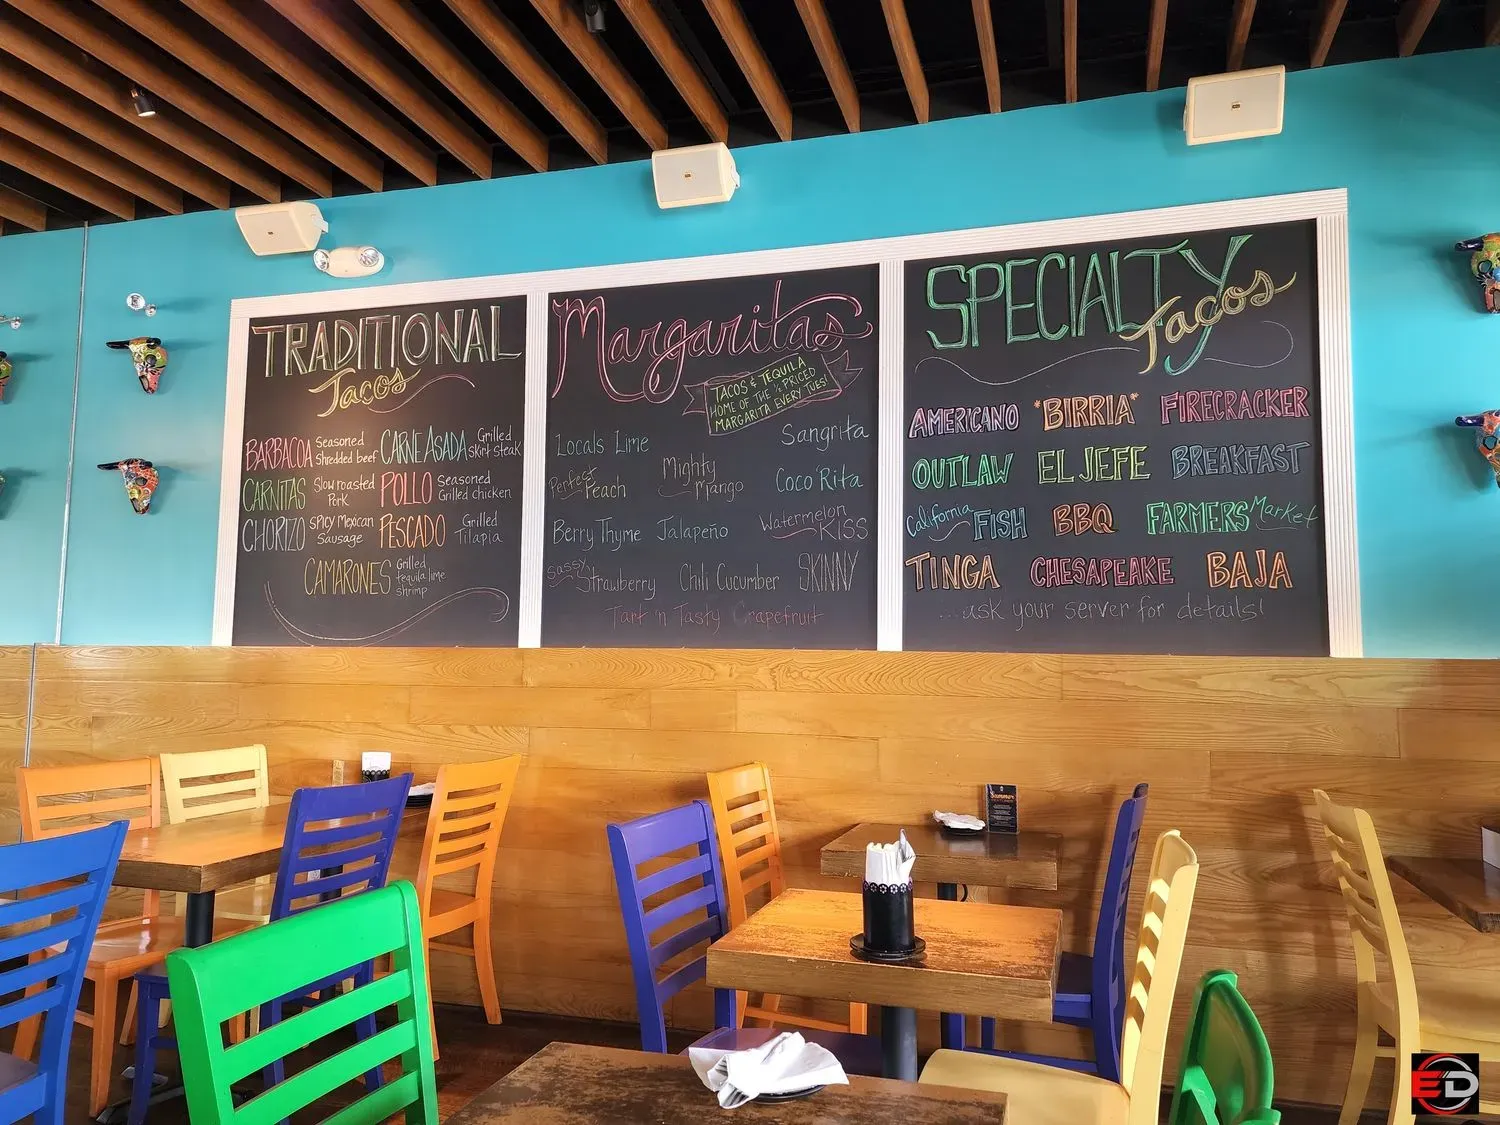 TRADITIONAL
Tacos
BARBACOA Seasoned Shredded beef
CARNE ASADA Grilled Skirt Steak
CARNITAS Slow roasted Pork
POLLO Seasoned Grilled chicken
CHORIZO Spicy Mexican Sausage
PESCADO Grilled Tilapia
CAMARONES Grilled tequila lime shrimp
Margaritas
TACOS & TEQUILA
HOME OF THE ½ PRICED
MARGARITA EVERY TUES!
Locals Lime
Sangrita
Perfect Peach
Mighty Mango
Coco'Rita
Berry Thyme
Jalapeño
Watermelon KISS
Sassy Strawberry
Chili Cucumber
SKINNY
Tart 'n Tasty Grapefruit
SPECIALTY
Tacos
AMERICANO
*BIRRIA*
FIRECRACKER
OUTLAW
EL JEFE
BREAKFAST
California FISH
BBQ
FARMERS Market
TINGA
CHESAPEAKE
BAJA
...ask your server for details!
Summer
ED